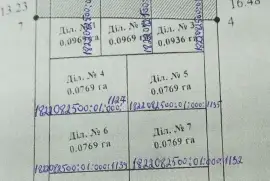 13.23
16.48
7
4
Діл. №
0.096
Діл. №
0.0969
Діл. № 3
0.0936 га
1822082500:01:
Діл. № 4
0.0769 га
Діл. № 5
0.0769 га
1822082500:01:000:1124
1822082500:01:000:1135
Діл. № 6
0.0769 га
Діл. № 7
0.0769 га
1822082500:01:000:1133
1822082500:01:000:1132